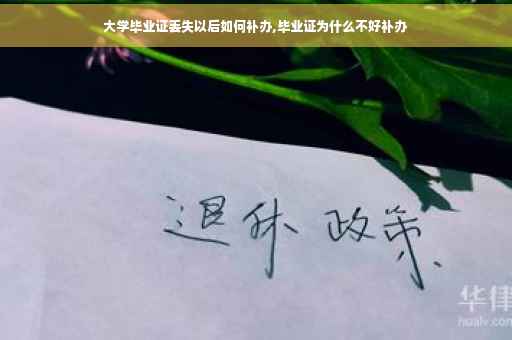 大学毕业证丢失以后如何补办,毕业证为什么不好补办
退休 政策
华律
hualv.com